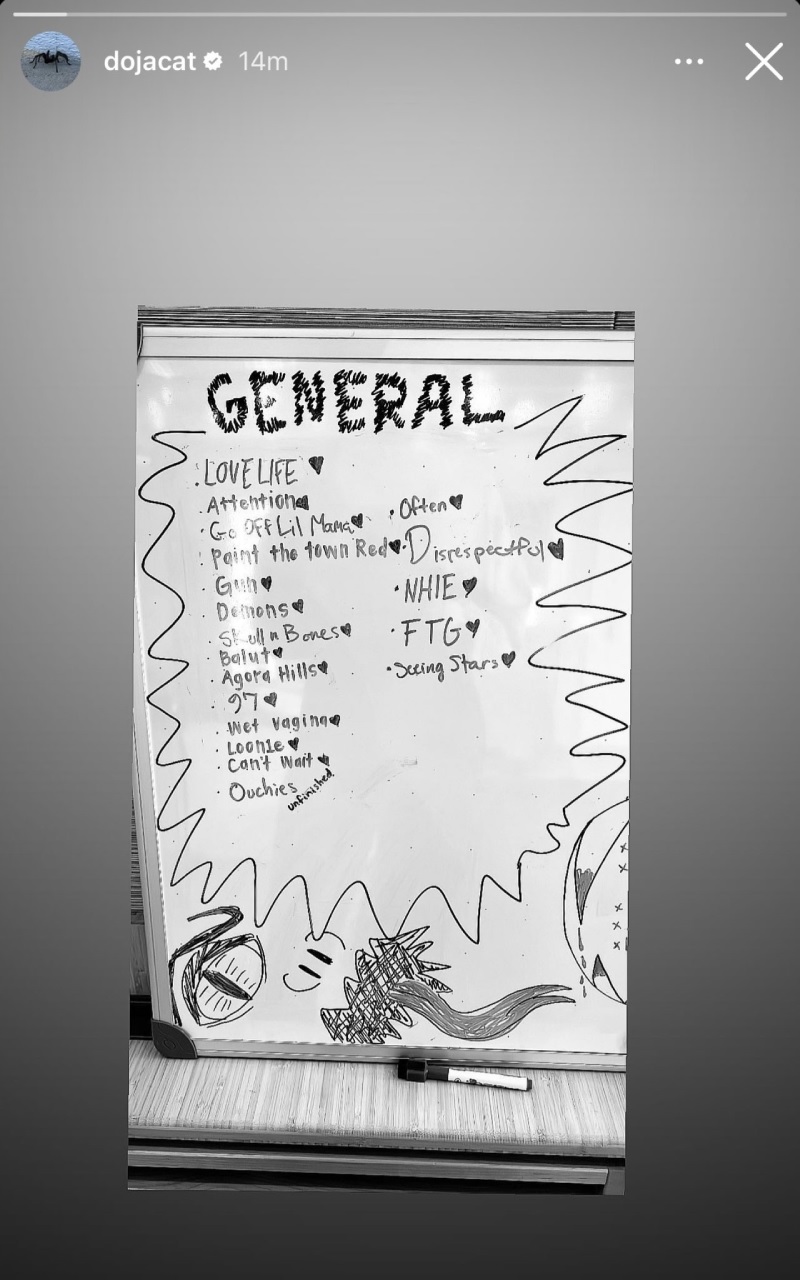 dojacat 14m
GENERAL
. LOVE LIFE
. Attention
. Go OFF Lil Mama
. Paint the town Red
. Gun
. Demons
. Skull n Bones
. Balut
. Agora Hills
. 97
. Wet Vagina
. Loonie
. Can't Wait
. Ouchies unfinished
. Often
. Disrespectful
. NHIE
. FTG
. Seeing Stars